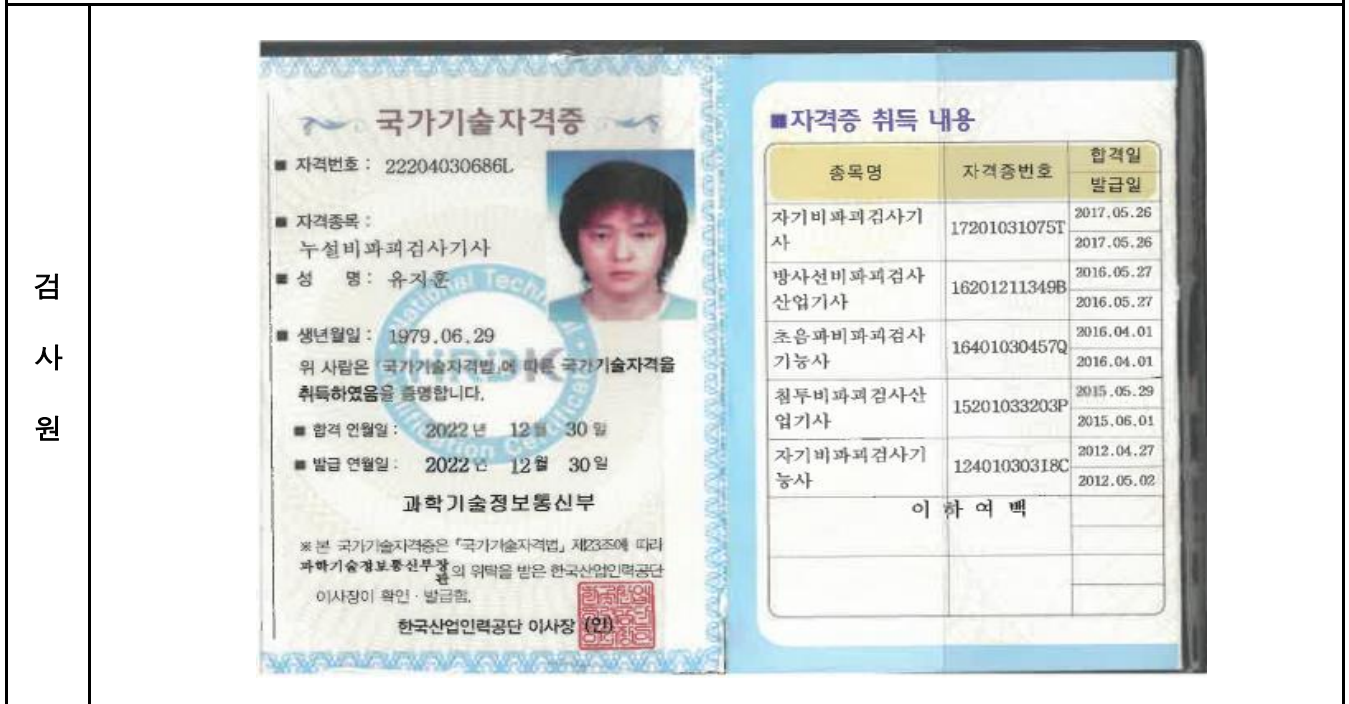 검
사
원
국가기술자격증
■ 자격번호 : 22204030686L
■ 자격종목 :
누설비파괴검사기사
■ 성 명 : 유지훈
■ 생년월일 : 1979.06.29
위 사람은 「국가기술자격법」에 따른 국가기술자격을
취득하였음을 증명합니다.
■ 합격 연월일 : 2022 년 12 월 30 일
■ 발급 연월일 : 2022 년 12 월 30 일
과학기술정보통신부
※ 본 국가기술자격증은 「국가기술자격법」 제23조에 따라
과학기술정보통신부장관의 위탁을 받은 한국산업인력공단
이사장이 확인 · 발급함.
한국산업인력공단 이사장 (인)
HRDK
■자격증 취득 내용
종목명 자격증번호 합격일
발급일
자기비파괴검사기 17201031075T 2017.05.26
사 2017.05.26
방사선비파괴검사 16201211349B 2016.05.27
산업기사 2016.05.27
초음파비파괴검사 16401030457Q 2016.04.01
기능사 2016.04.01
침투비파괴검사산 15201033203P 2015.05.29
업기사 2015.06.01
자기비파괴검사기 12401030318C 2012.04.27
능사 2012.05.02
이 하 여 백